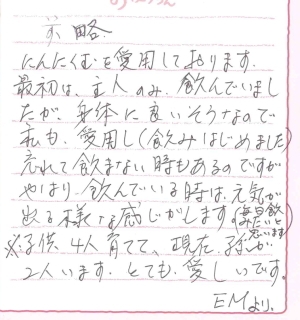 前略
にんにくむを愛用して居ります.
最初は、主人のみ、飲んでいまし
たが、身体に良いそうなので
私も、愛用し(飲みはじめました)
忘れて飲まない時もあるのですが
やはり、飲んでいる時は、元気が
出る様な感じがします。(毎日飲みたいと思います)
※子供4人育てて、現在、孫が
2人います. とても、愛しいです。
EMより.